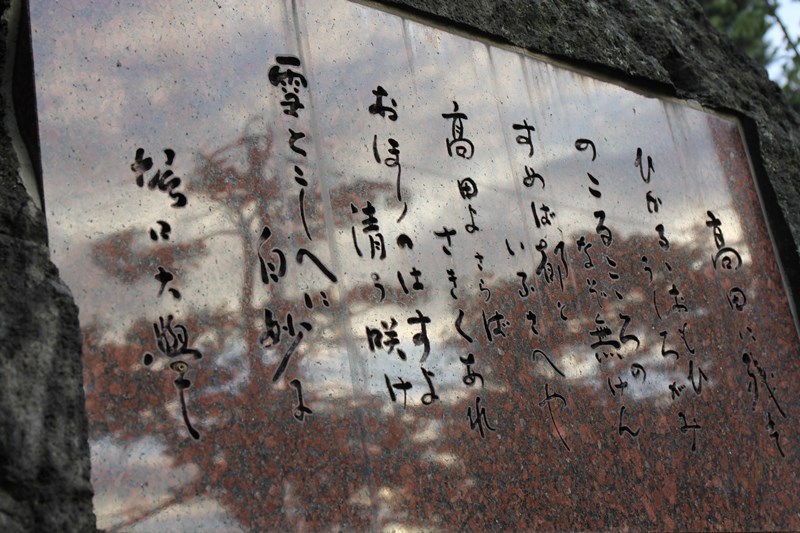 高田に残す
ひかるゝおもひ
うしろがみ
のこるこゝろの
なぞ無けん
すめば都と
いふさへや
高田よさらば
さきくあれ
おほりのはすよ
清う咲け
雪とこしへに
白妙に
堀口大學